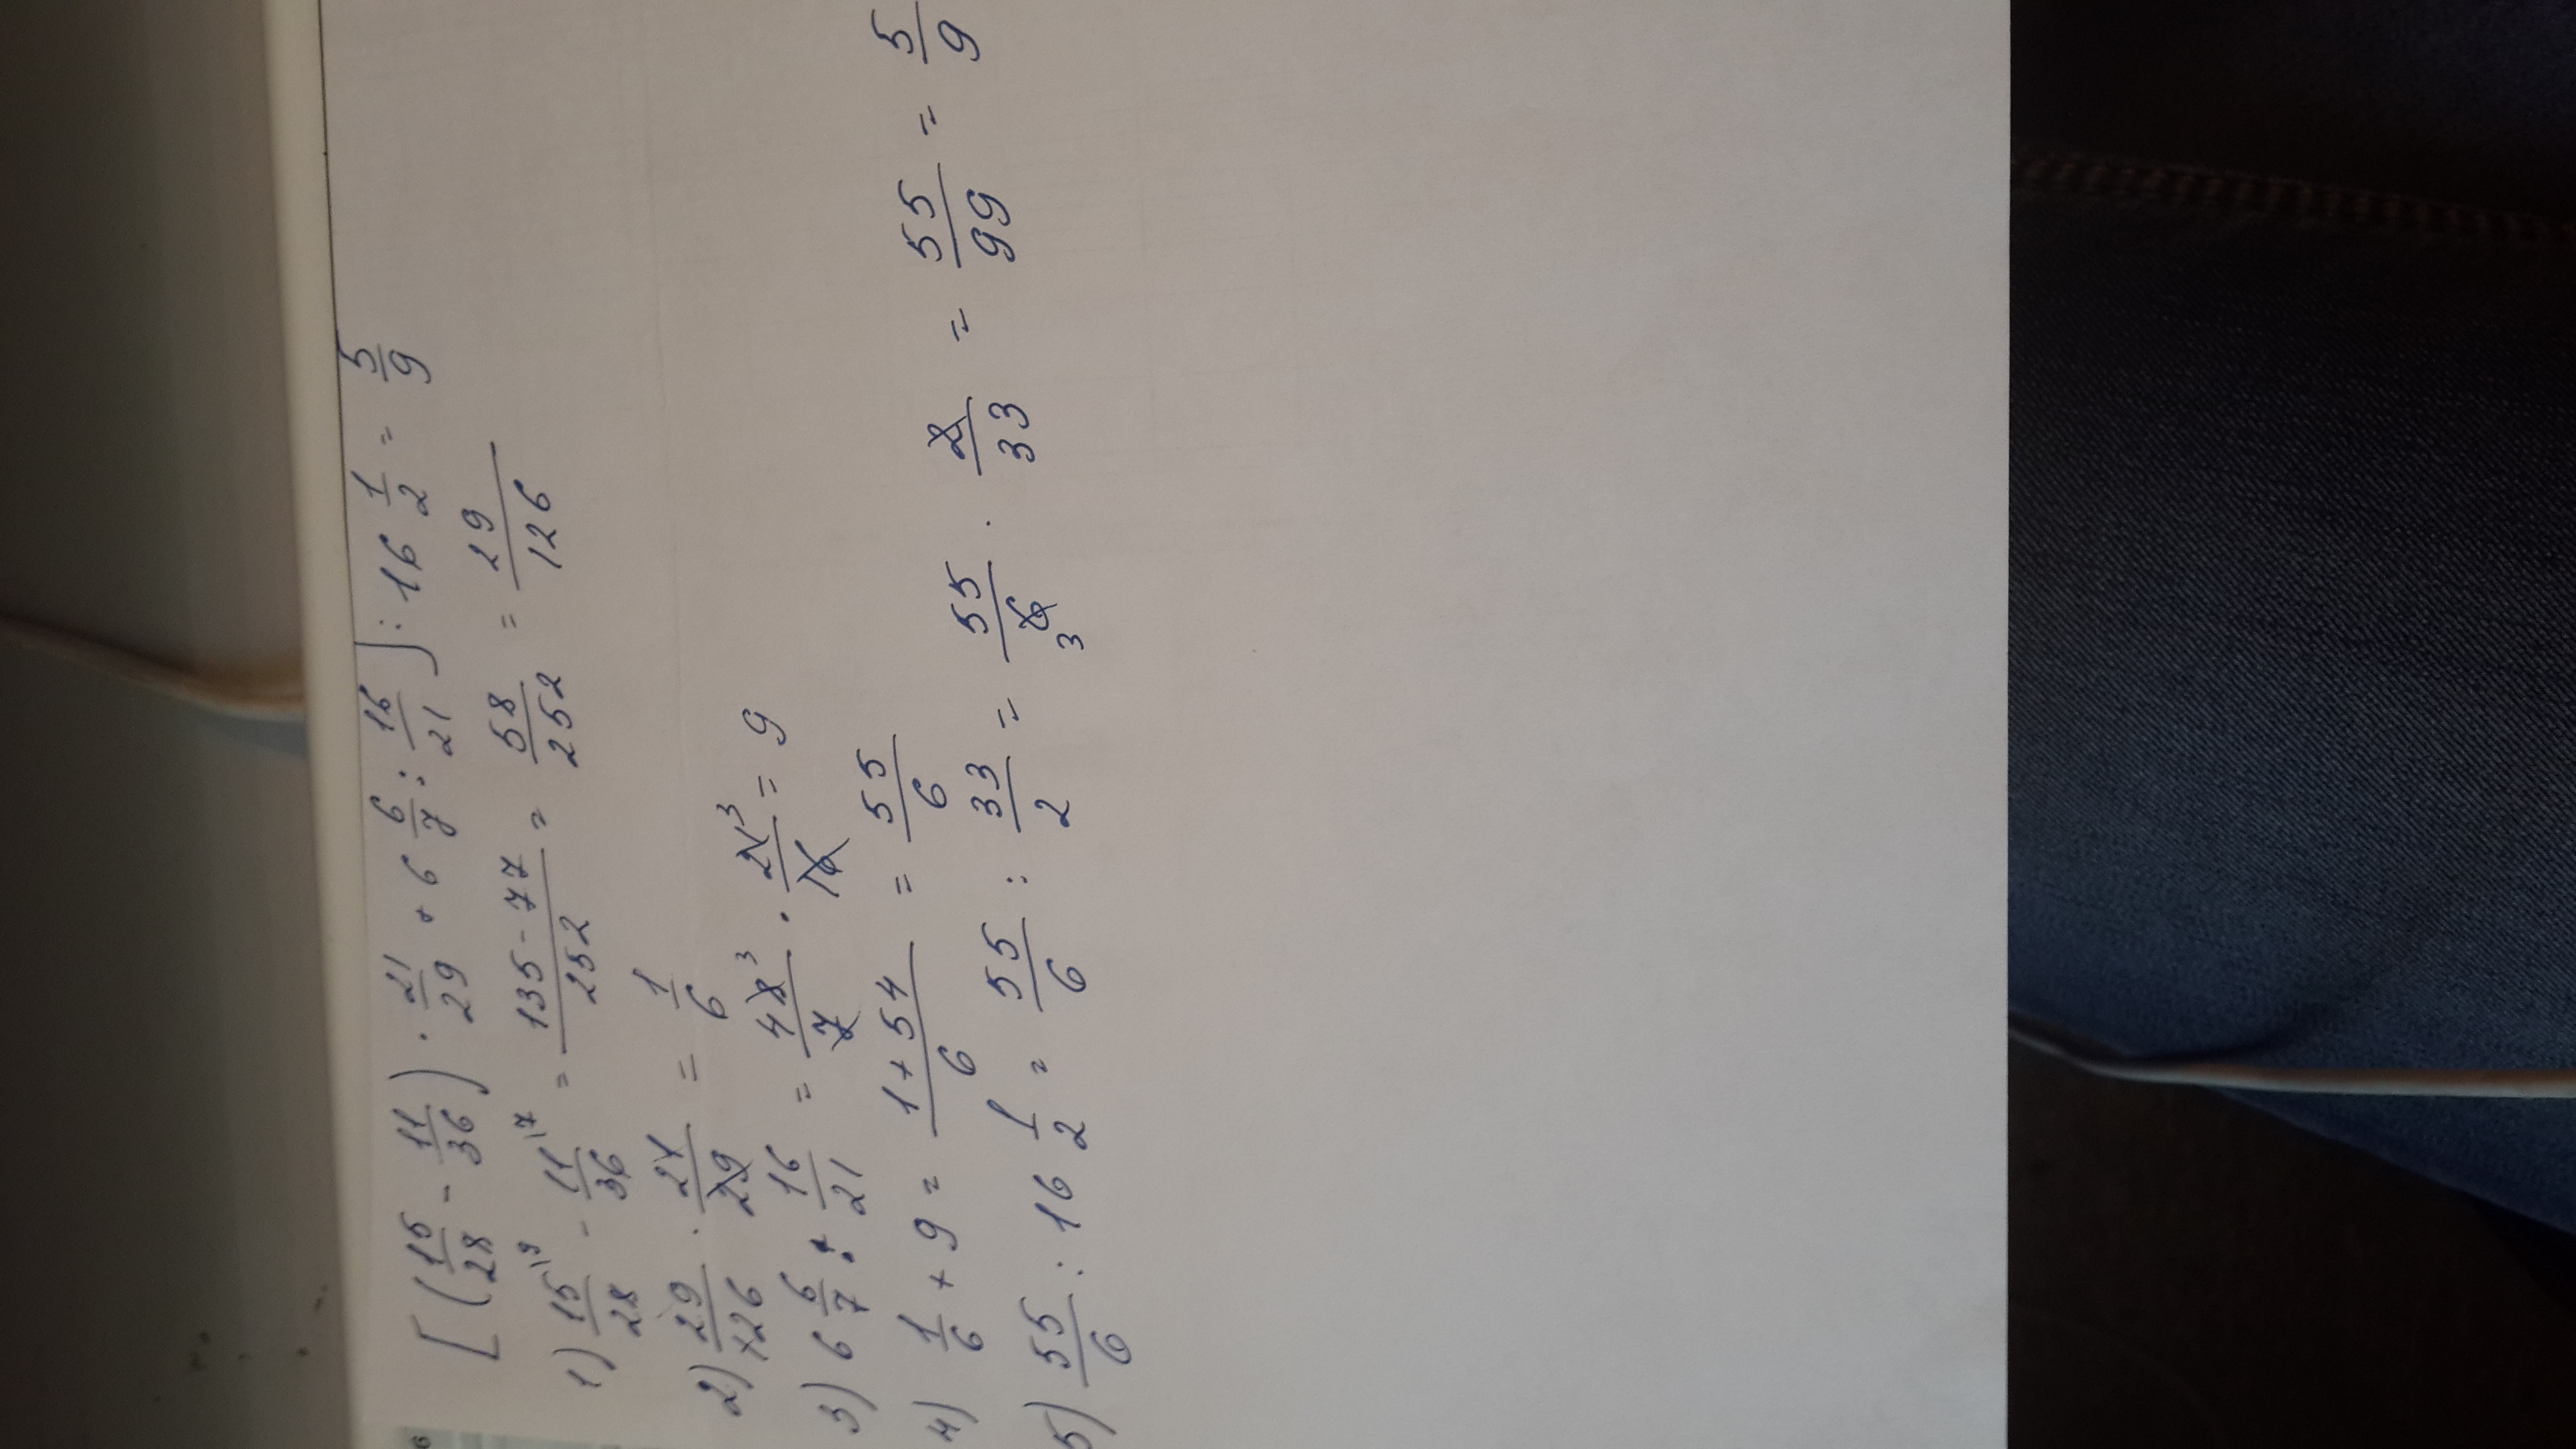 [(15/28 - 11/36) · 21/29 + 6 6/7 : 16/21] : 16 1/2 = 5/9
1) 15\9/28 - 11\7/36 = 135-77/252 = 58/252 = 29/126
2) 29/126 · 21/29 = 1/6
3) 6 6/7 : 16/21 = 48 3/7 · 21 3/16 = 9
4) 1/6 + 9 = 1+54/6 = 55/6
5) 55/6 : 16 1/2 = 55/6 : 33/2 = 55/6 3 · 2/33 = 55/99 = 5/9